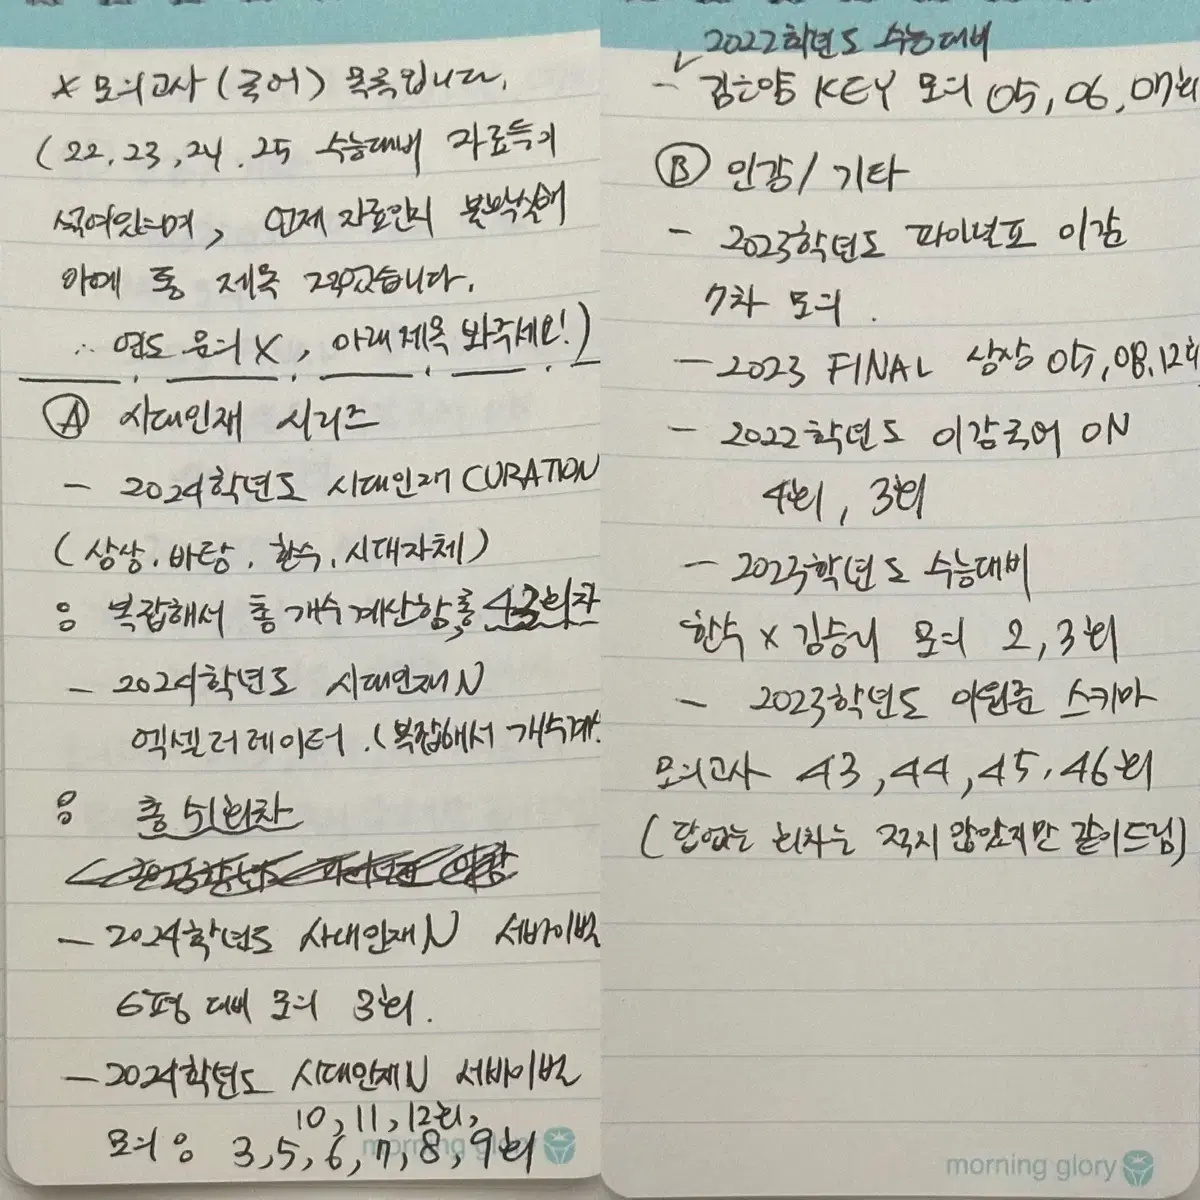 * 모의고사 (국어) 목록입니다.
(22, 23, 24, 25 수능대비 자료들이
섞여있으며, 언제 자료인지 불확실해
아예 통 제목 적었습니다.
∴ 연도 문의 X, 아래 제목 봐주세요!)
Ⓐ 시대인재 시리즈
- 2024학년도 시대인재 CURATION
(상상, 바탕, 한수, 시대자체)
: 복잡해서 총 개수 계산함, 총 43회차
- 2024학년도 시대인재N
엑셀러레이터. (복잡해서 개수계.
: 총 51회차
- 2024학년도 시대인재N 서바이벌
6평 대비 모의 3회.
- 2024학년도 시대인재N 서바이벌
10, 11, 12회,
모의 : 3, 5, 6, 7, 8, 9회
morning glory
2022학년도 수능대비
- 김은양 KEY 모의 05, 06, 07회
Ⓑ 인강 / 기타
- 2023학년도 파이널포 이감
7차 모의.
- 2023 FINAL 상상 05, 08, 12회
- 2022학년도 이감국어 ON
4회, 3회
- 2023학년도 수능대비
한수 x 김승리 모의 2, 3회
- 2023학년도 이원준 스키마
모의고사 43, 44, 45, 46회
(답없는 회차는 적지 않았지만 같이드림)
morning glory